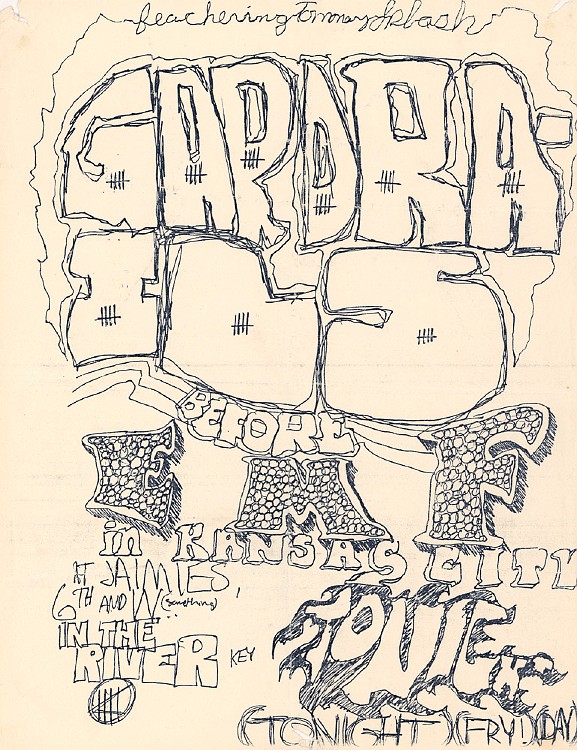 feachering Tommay Splash
GARDRA-
ILS
BEFORE
EMF
in KANSAS CITY
AT JAIMIES,
6TH AND W (something)
IN THE
RIVER KEY
(TONIGHT)(FRY!)(DAY)